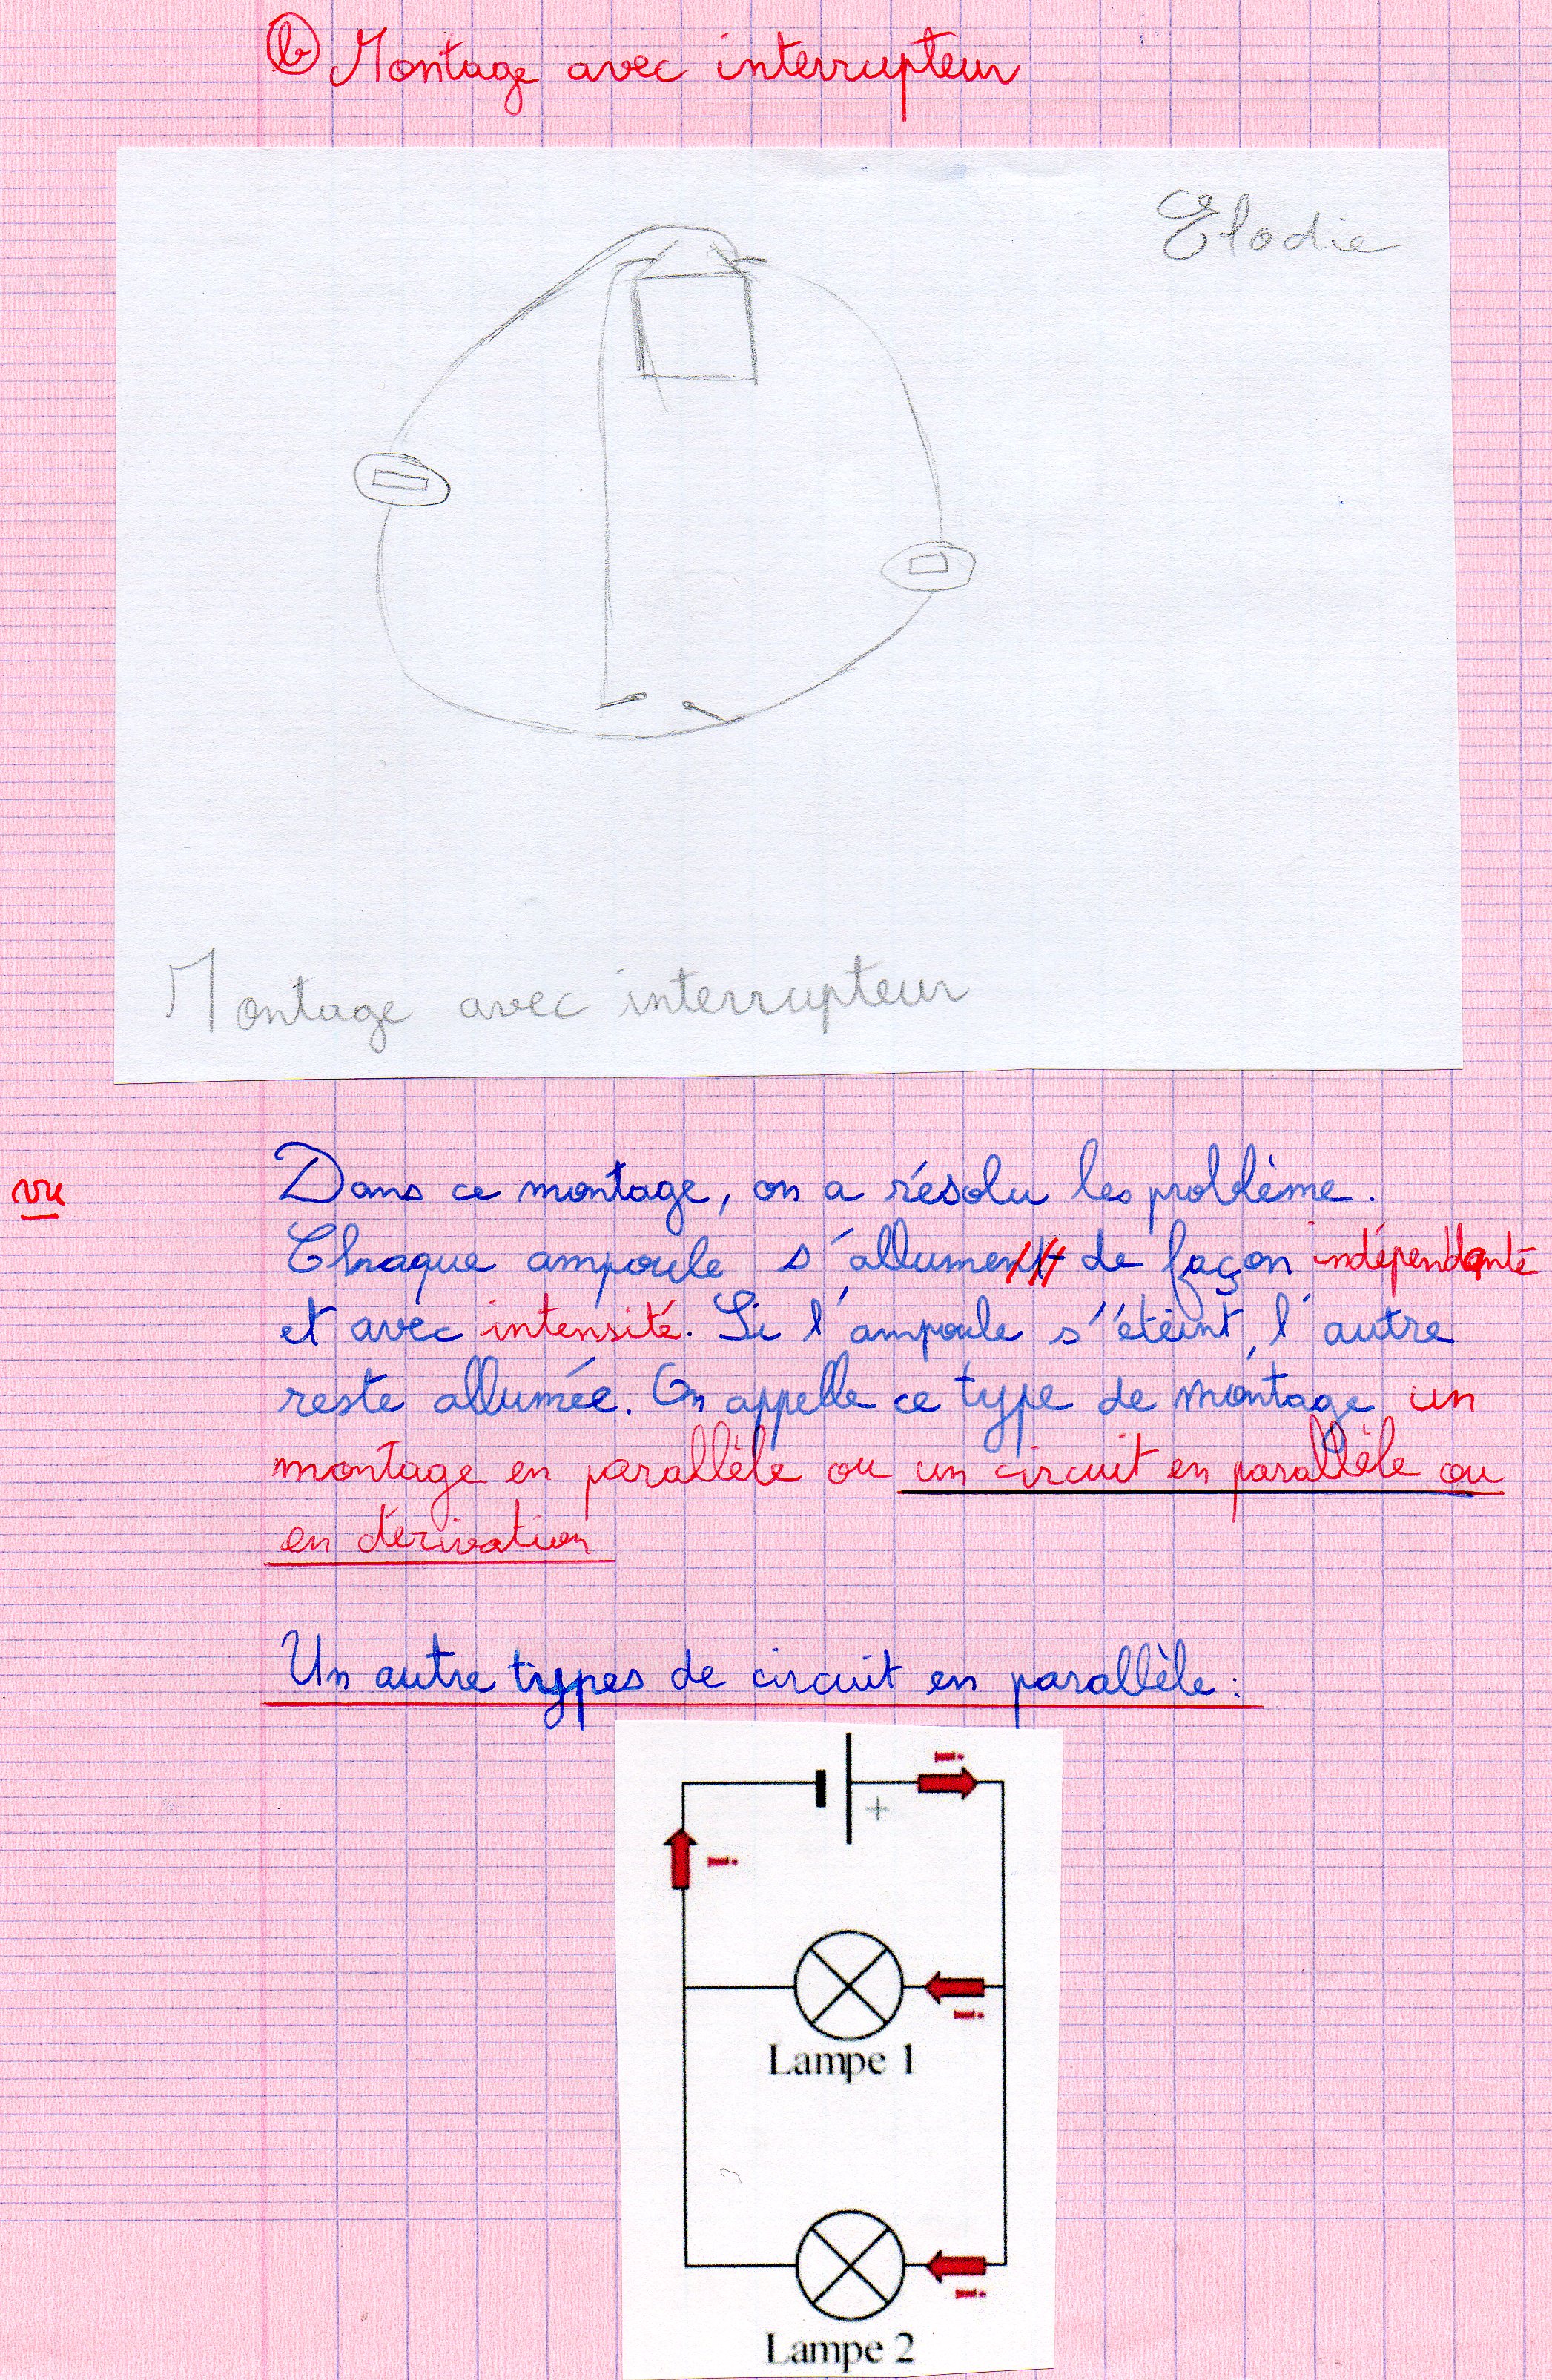 b Montage avec interrupteur
Elodie
Montage avec interrupteur
vu
Dans ce montage, on a résolu les problème.
Chaque ampoule s'allument de façon indépendante
et avec intensité. Si l'ampoule s'éteint, l'autre
reste allumée. On appelle ce type de montage un
montage en parallèle ou un circuit en parallèle ou
en dérivation
Un autre types de circuit en parallèle :
i
+
i
i
Lampe 1
i
Lampe 2